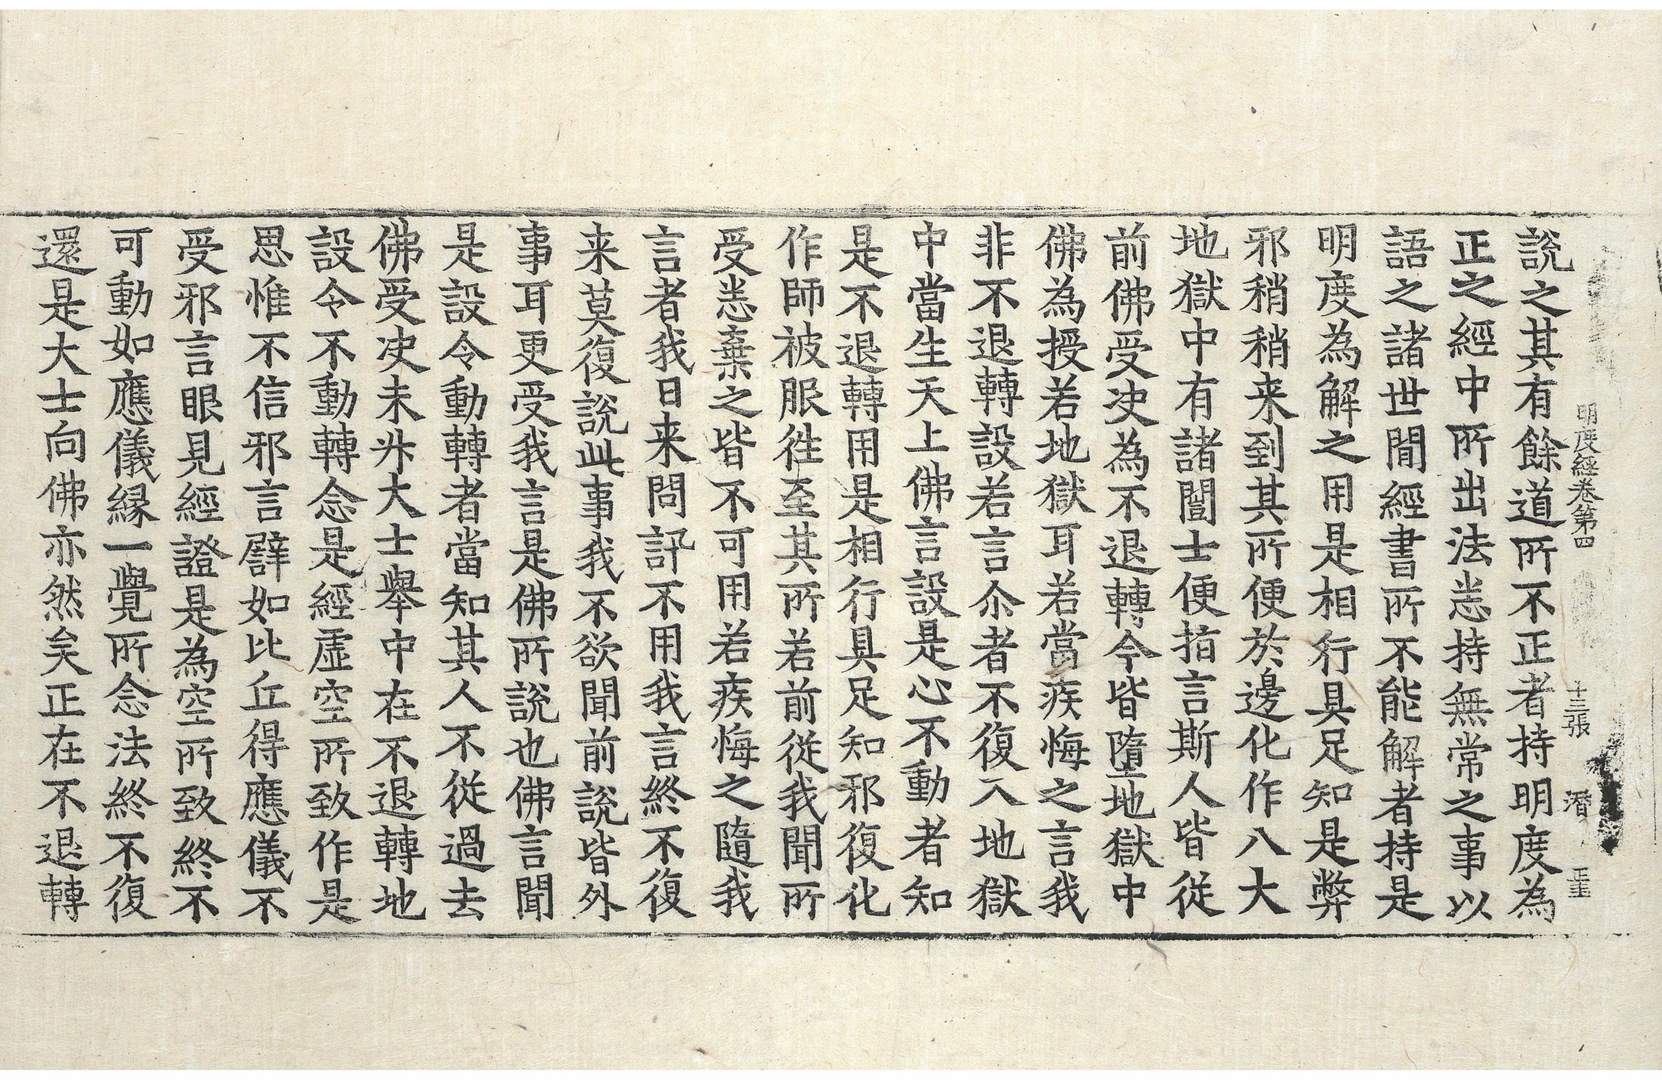 明度經卷第四 十三張 潛 玉
說之其有餘道所不正者持明度為
正之經中所出法悉持無常之事以
語之諸世間經書所不能解者持是
明度為解之用是相行具足知是弊
邪稍稍来到其所便於邊化作八大
地獄中有諸闓士便指言斯人皆從
前佛受决為不退轉今皆墮地獄中
佛為授若地獄耳若當疾悔之言我
非不退轉設若言尒者不復入地獄
中當生天上佛言設是心不動者知
是不退轉用是相行具足知邪復化
作師被服徃至其所若前從我聞所
受悉棄之皆不可用若疾悔之隨我
言者我日来問訊不用我言終不復
来莫復說此事我不欲聞前說皆外
事耳更受我言是佛所說也佛言聞
是設令動轉者當知其人不從過去
佛受决未升大士舉中在不退轉地
設令不動轉念是經虛空所致作是
思惟不信邪言譬如比丘得應儀不
受邪言眼見經證是為空所致終不
可動如應儀緣一覺所念法終不復
還是大士向佛亦然矣正在不退轉